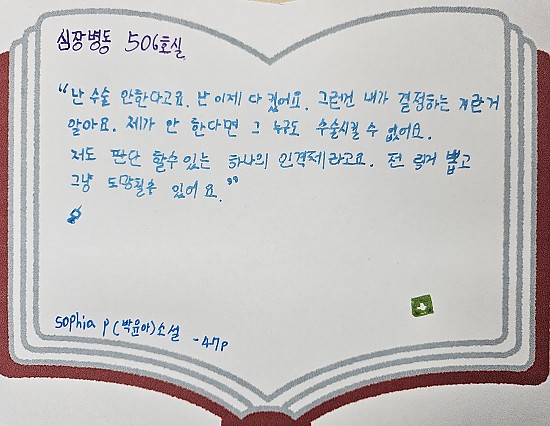 심장병동 506호실
"난 수술 안한다고요. 난 이제 다 컸어요. 그런건 내가 결정하는 거란거
알아요. 제가 안 한다면 그 누구도 수술시킬 수 없어요.
저도 판단 할수 있는 하나의 인격체라고요. 전 링거 뽑고
그냥 도망칠수 있어요."
sophia p (박윤아) 소설 - 47p